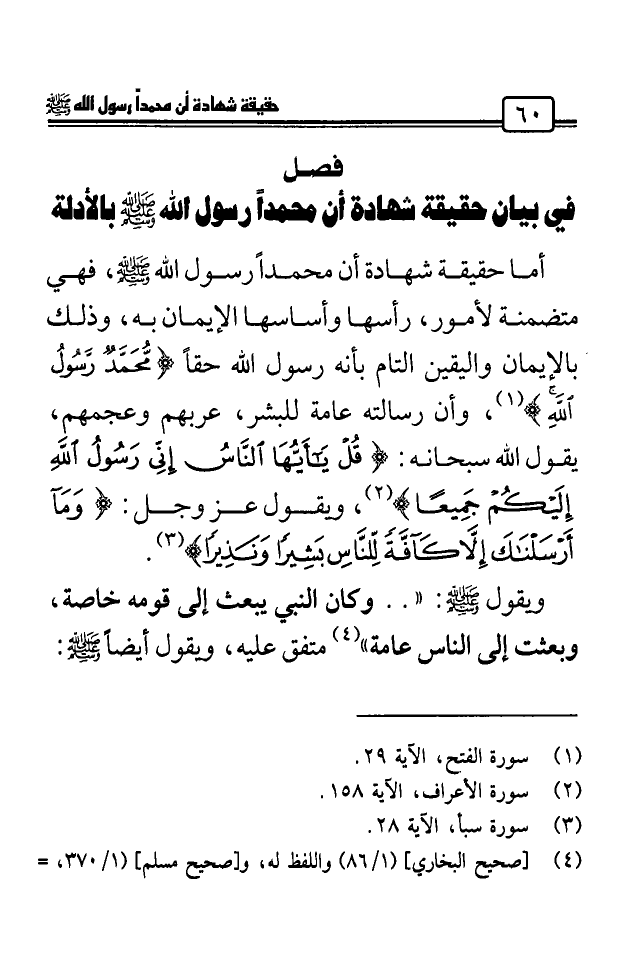 حقيقة شهادة أن محمداً رسول الله ﷺ
٦٠
فصل
في بيان حقيقة شهادة أن محمداً رسول الله ﷺ بالأدلة
أما حقيقة شهادة أن محمداً رسول الله ﷺ، فهي
متضمنة لأمور، رأسها وأساسها الإيمان به، وذلك
بالإيمان واليقين التام بأنه رسول الله حقاً ﴿ مُّحَمَّدٌ رَّسُولُ
ٱللَّهِۚ ﴾(١)، وأن رسالته عامة للبشر، عربهم وعجمهم،
يقول الله سبحانه: ﴿ قُلْ يَٰٓأَيُّهَا ٱلنَّاسُ إِنِّى رَسُولُ ٱللَّهِ
إِلَيْكُمْ جَمِيعًا ﴾(٢)، ويقول عز وجل: ﴿ وَمَآ
أَرْسَلْنَٰكَ إِلَّا كَآفَّةً لِّلنَّاسِ بَشِيرًا وَنَذِيرًا ﴾(٣).
ويقول ﷺ: «.. وكان النبي يبعث إلى قومه خاصة،
وبعثت إلى الناس عامة»(٤) متفق عليه، ويقول أيضاً ﷺ:
(١) سورة الفتح، الآية ٢٩.
(٢) سورة الأعراف، الآية ١٥٨.
(٣) سورة سبأ، الآية ٢٨.
(٤) [صحيح البخاري] (١/ ٨٦) واللفظ له، و[صحيح مسلم] (١/ ٣٧٠، =